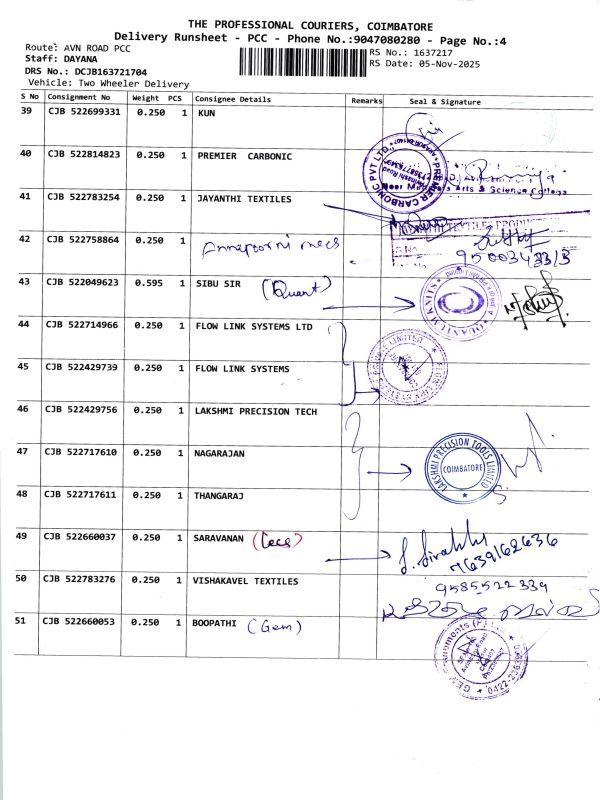 THE PROFESSIONAL COURIERS, COIMBATORE
Delivery Runsheet - PCC - Phone No.:9047080280 - Page No.:4
Route: AVN ROAD PCC
RS No.: 1637217
Staff: DAYANA
RS Date: 05-Nov-2025
DRS No.: DCJB163721704
Vehicle: Two Wheeler Delivery
S No Consignment No Weight PCS Consignee Details Remarks Seal & Signature
39 CJB 522699331 0.250 1 KUN
40 CJB 522814823 0.250 1 PREMIER CARBONIC
PREMIER CARBONIC PVT LTD
Arts & Science College
41 CJB 522783254 0.250 1 JAYANTHI TEXTILES
42 CJB 522758864 0.250 1 Annapoorni mess
9500343313
43 CJB 522049623 0.595 1 SIBU SIR (Quant)
QUANTUM KNITS
44 CJB 522714966 0.250 1 FLOW LINK SYSTEMS LTD
45 CJB 522429739 0.250 1 FLOW LINK SYSTEMS
46 CJB 522429756 0.250 1 LAKSHMI PRECISION TECH
47 CJB 522717610 0.250 1 NAGARAJAN
LAKSHMI PRECISION TOOLS LIMITED
COIMBATORE
48 CJB 522717611 0.250 1 THANGARAJ
49 CJB 522660037 0.250 1 SARAVANAN
7639162636
50 CJB 522783276 0.250 1 VISHAKAVEL TEXTILES
9585522339
51 CJB 522660053 0.250 1 BOOPATHI (Gem)